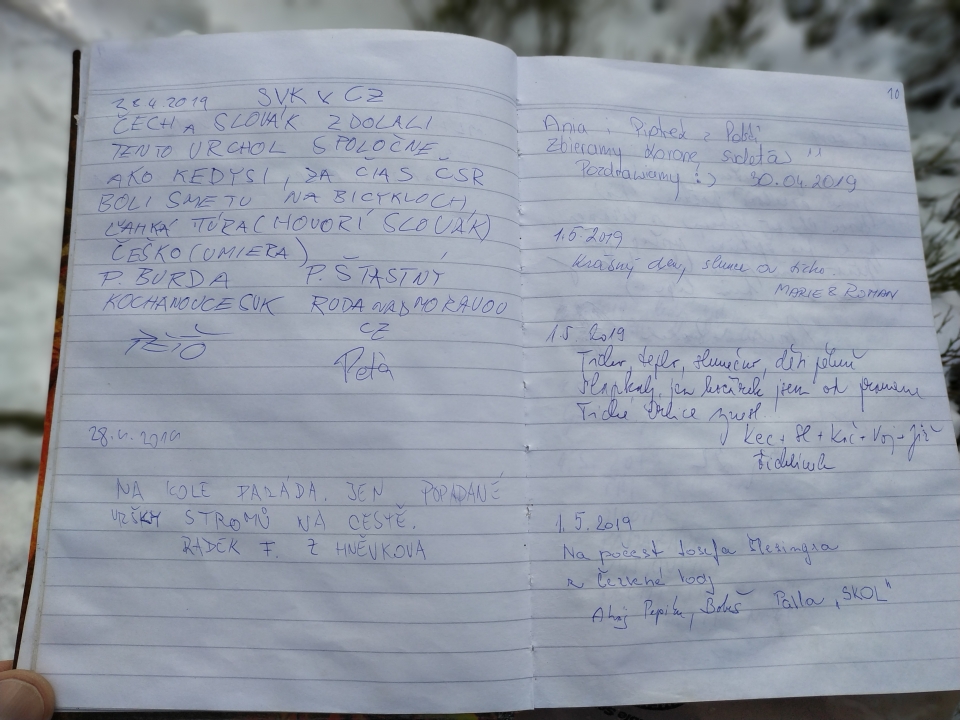 28.4.2019 SVK v CZ
ČECH A SLOVÁK ZDOLALI
TENTO VRCHOL SPOLOČNE
AKO KEDYSI, ZA ČIAS ČSR
BOLI SME TU NA BICYKLOCH
ĽAHKÁ TÚRA (HOVORÍ SLOVÁK)
ČEŠKO (UMIERA)
P. BURDA P. ŠŤASTNÝ
KOCHANOVCE SVK RODA NAD MORAVOU
CZ
Peťa
28.4.2019
NA KOLE PARÁDA. JEN POPADANÉ
VRŠKY STROMŮ NA CESTĚ.
RADEK F. Z HNĚVKOVA
10
Ania i Piotrek z Polski
Zbieramy Koronę Sudetów !!
Pozdrawiamy :) 30.04.2019
1.5.2019
Krásný den, slunce a ticho.
MARIE & ROMAN
1.5.2019
Ticho, teplo, slunečno,
jen kočárek jsem od pramene
Tiché Orlice
Kec + + + Voj + Jiř
1.5.2019
Na počest Josefa
z Červené Vody
Ahoj Pepíku, Bobeš Palla „SKOL"